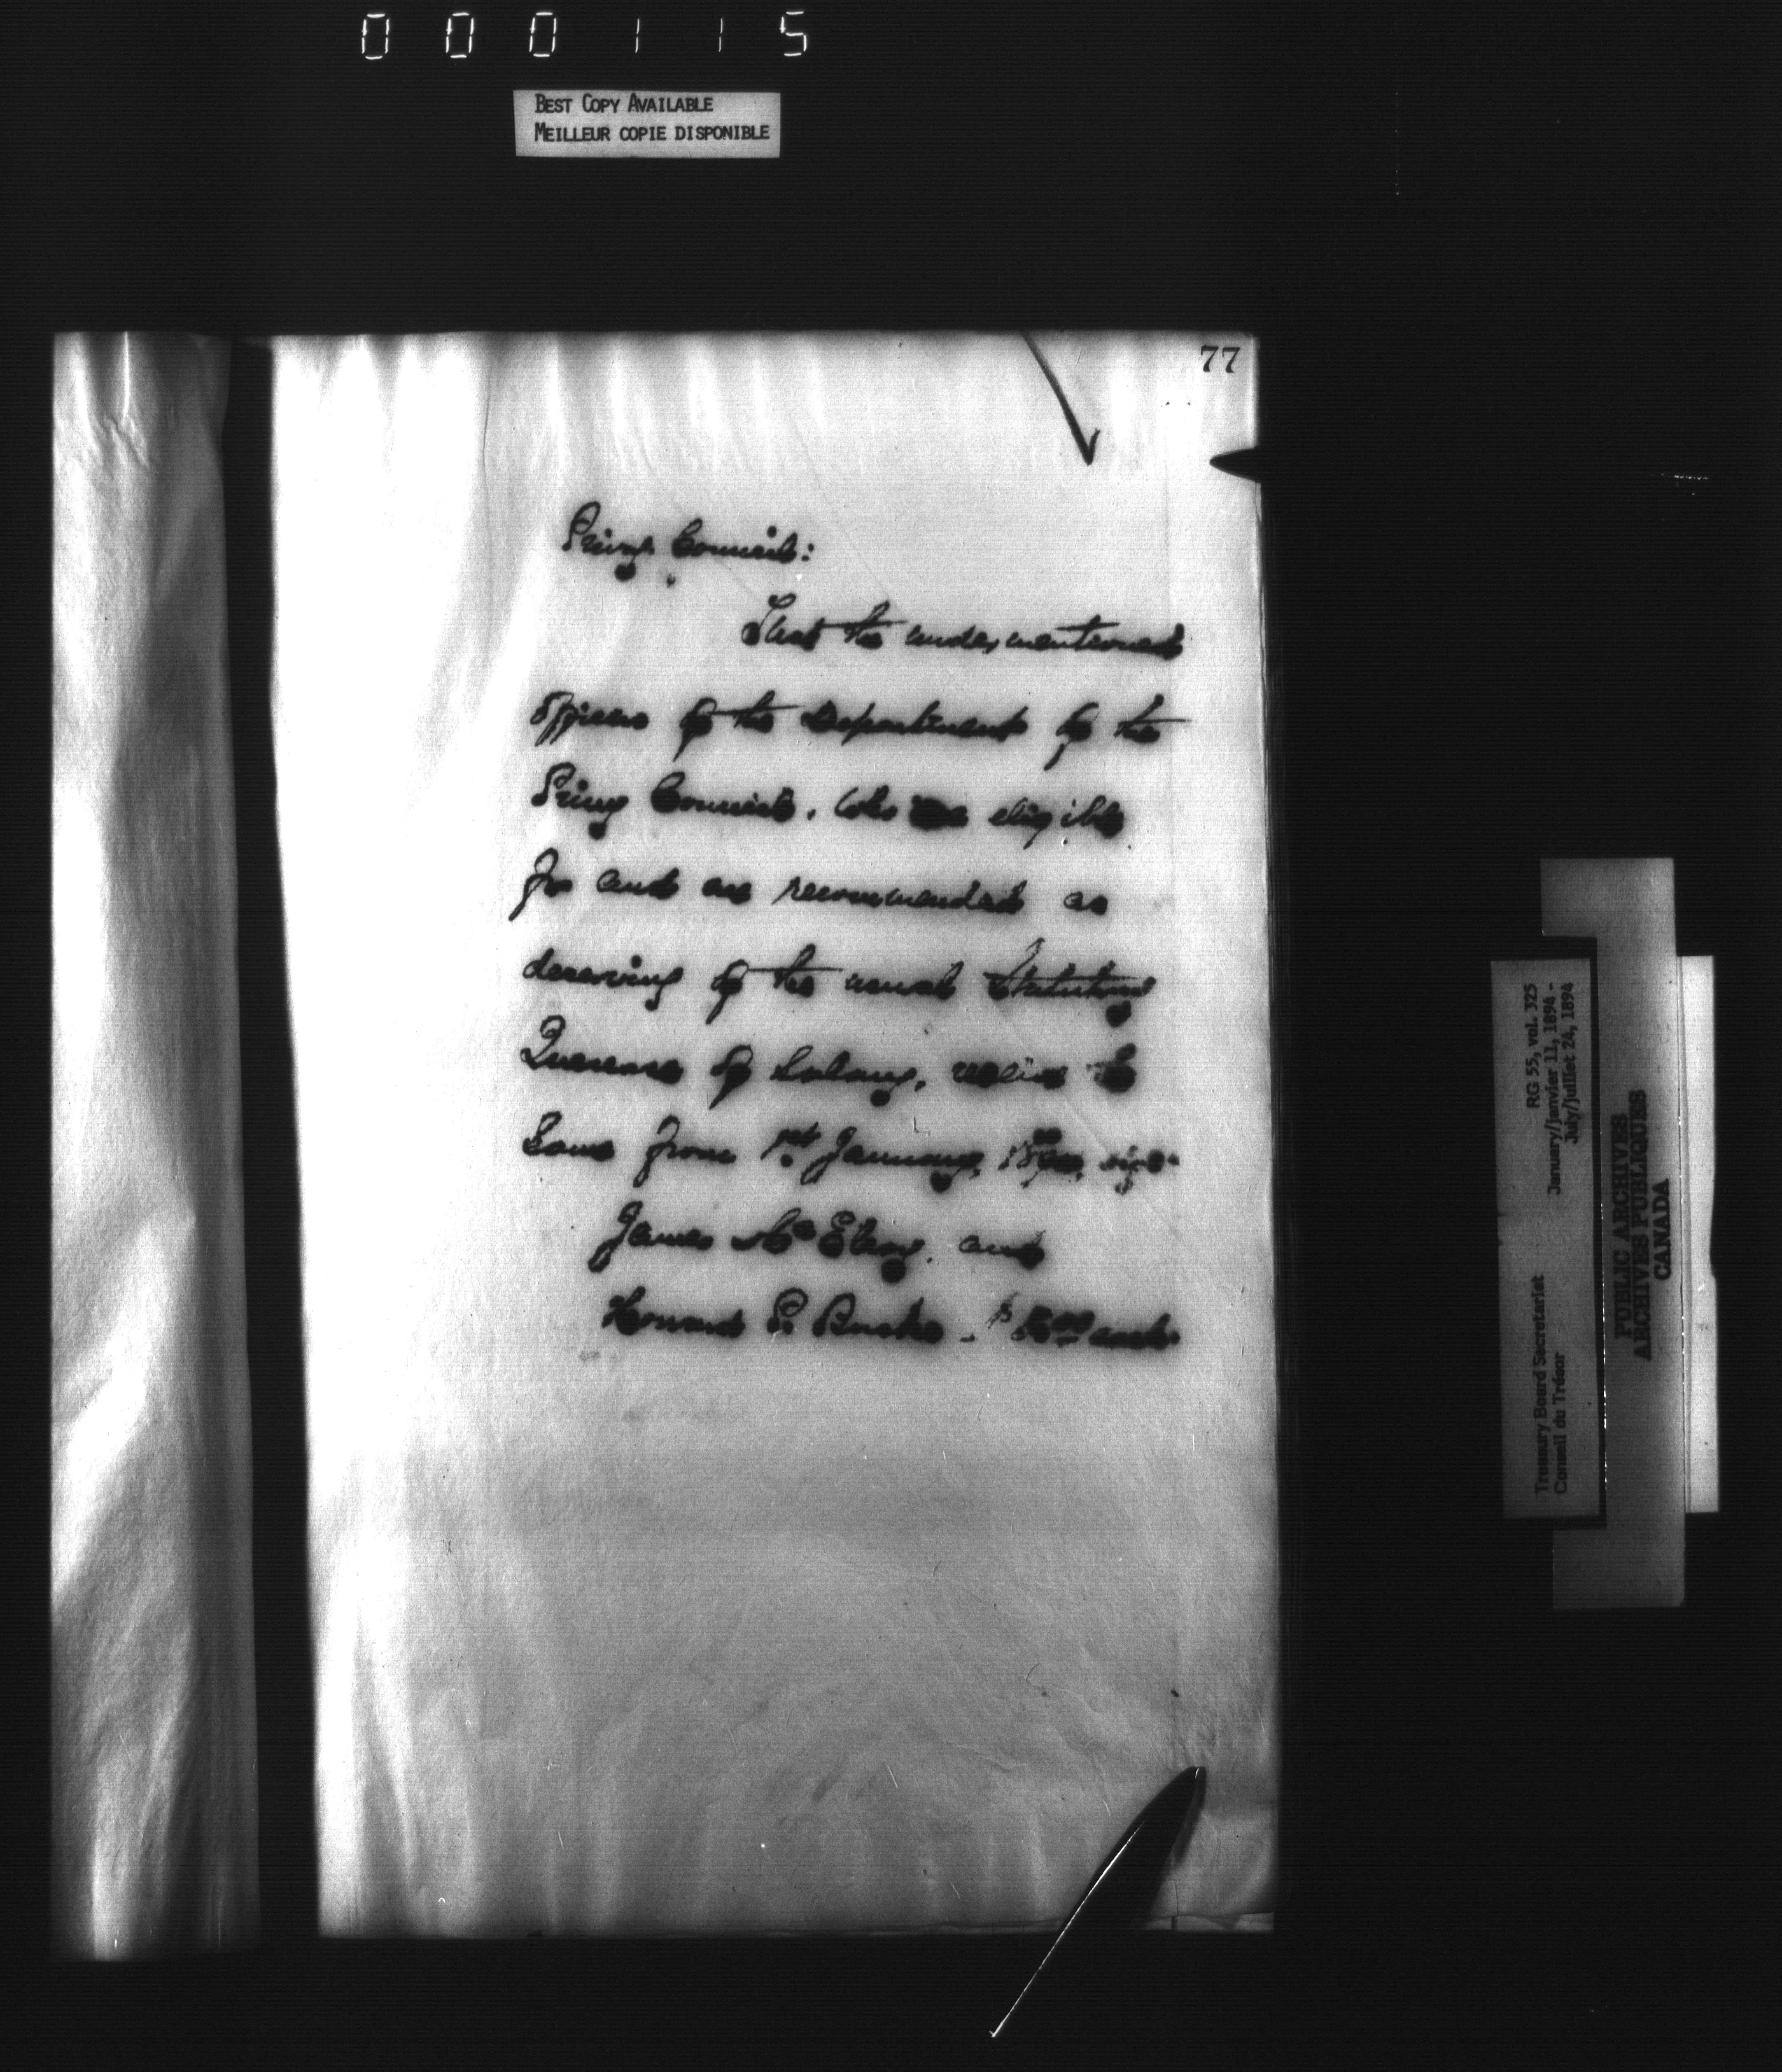 000115
BEST COPY AVAILABLE
MEILLEUR COPIE DISPONIBLE
77
Privy Council:
That the undermentioned
Officers of the Department of the
Privy Council, who are eligible
for and are recommended as
deserving of the usual Statutory
Increase of Salary, receive the
Same from 1st January,
James Mc Elroy, and
Howard each
Treasury Board Secretariat RG 55, vol. 325
Conseil du Trésor January/janvier 11, 1894 -
July/juillet 24, 1894
PUBLIC ARCHIVES
ARCHIVES PUBLIQUES
CANADA